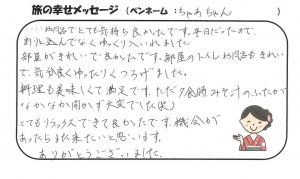 旅の幸せメッセージ (ペンネーム:ちゃあちゃん)
・・・・お風呂でとても気持ち良かったです。平日だったので
あまり込んでなくゆっくり入れました。
部屋がきれいで良かったです。部屋のトイレお風呂もきれい
で、気分良くゆったりくつろげました。
料理も美味しくて満足です。ただ夕食時みそ汁のふたが
なかなか開かず大変でした(笑)
とてもリラックスできて良かったです。機会が
あったらまた来たいと思います。
ありがとうございました。